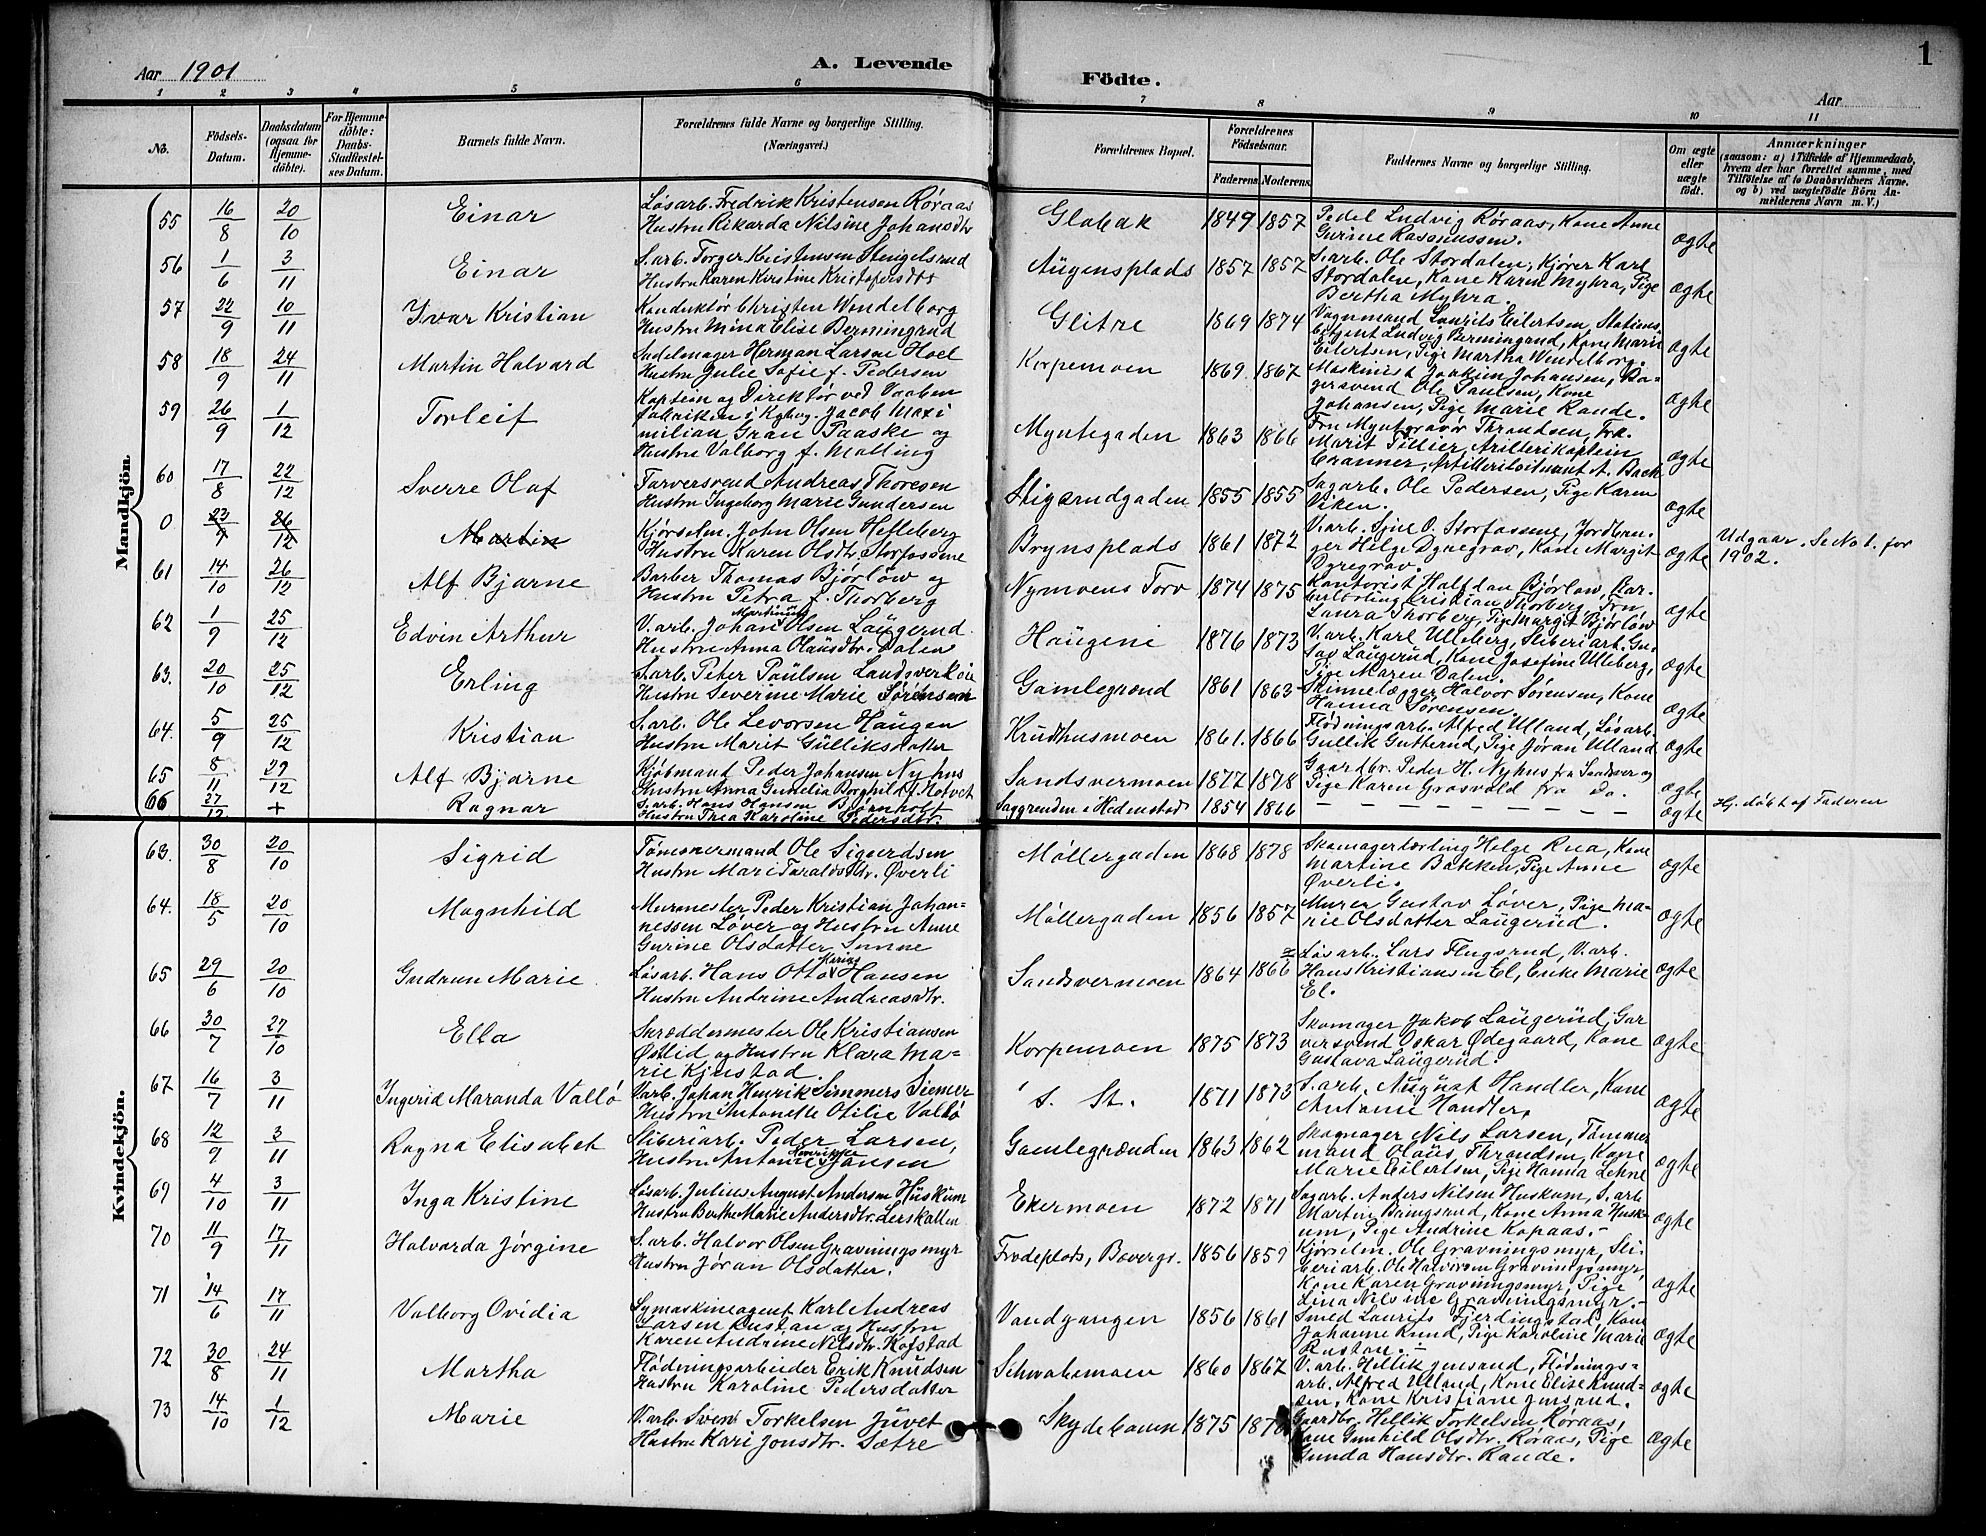 1
Aar 1901
A. Levende
Födte.
Aar
1 2 3 4 5 6 7 8 9 10 11
No.
Födsels-
Datum.
Daabsdatum
(ogsaa for
Hjemme-
döbte).
For Hjemme-
döbte:
Daabs-
Stadfæstel-
ses Datum.
Barnets fulde Navn.
Forældrenes fulde Navne og borgerlige Stilling.
(Næringsvei.)
Forældrenes Bopæl.
Forældrenes
Födselsaar.
Faderens. Moderens.
Faddernes Navne og borgerlige Stilling.
Om ægte
eller
uægte
födt.
Anmærkninger
(saasom: a) i Tilfælde af Hjemmedaab,
hvem der har forrettet samme, med
Tilföielse af to Daabsvidners Navne,
og b) ved uægtefödte Börn An-
melderens Navn m. V.)
Mandkjön
55 16/8 20/10 Einar
Løsarb. Fredrik Kristensen Røraas
Hustru Rikarda Nilsine Johansdtr
Glabak 1849 1857
Pedel Ludvig Røraas, Kone Anne
Gurine Rasmussen.
ægte
56 1/6 3/11 Einar
S.arb. Torger Kristensen Stengelsrud
Hustru Karen Kirstine Kristofersdtr
Augensplads 1857 1857
S.arb. Ole Stordalen, Kjører Karl
Stordalen, Kone Karen Myhra, Pige
Bertha Myhra.
ægte
57 22/9 10/11 Ivar Kristian
Konduktør Christen Wendelborg
Hustru Mina Elise Bermingrud
Glitre 1869 1874
Vognmand Laurits Eilertsen, Stations-
betjent Ludvig Bermingrud, Kone Marie
Eilertsen, Pige Martha Wendelborg.
ægte
58 18/9 24/11 Martin Halvard
Sadelmager Herman Larsen Hoel
Hustru Julie Sofie f. Pedersen
Korpemoen 1869. 1867
Maskinist Joakim Johansen, Ba-
gersvend Ole Paulsen, Kone
Johansen, Pige Marie Rande.
ægte
59 26/9 1/12 Torleif
Kaptein og Direktør ved Vaaben
fabrikken i Kgbvg. Jacob Maxi
milian Gran Paaske og
Hustru Valborg f. Malling
Myntegaden 1863 1866
Fru Myntgravør Throndsen, Frk.
Marit Tillier, Artillerikaptein
Cranner, Artilleriløitnant A. Bach
ægte
60 17/8 22/12 Sverre Olaf
Farversvend Andreas Thoresen
Hustru Ingeborg Marie Gundersen
Stigerudgaden 1855 1855
Sagarb. Ole Pedersen, Pige Karen
Viken.
ægte
0 23/9 26/12 Martin
Kjørselm. John Olsen Helleberg
Hustru Karen Olsdtr. Storfossene
Brynsplads 1861 1872
V.arb. Sjul O. Storfossene, Jordbru-
ger Helge Dyregrav, Kone Margit
Dyregrav.
ægte
Udgaar. Se No 1. for
1902.
61 14/10 26/12 Alf Bjarne
Barber Thomas Bjørløw og
Hustru Petra f. Thorberg
Nymoens Torv 1874 1875
Kontorist Halfdan Bjørløw, Bar-
berlærling Kristian Thorberg, Fru
Laura Thorberg, Pige Margit Bjørløw
ægte
62 1/9 25/12 Edvin Arthur
Martinius
V.arb. Johan Olsen Laugerud.
Hustru Anna Olausdtr. Dalen
Haugene 1876 1873
V.arb. Karl Ulleberg, Sliberiarb. Gu-
stav Laugerud, Kone Josefine Ulleberg,
Pige Maren Dalen.
ægte
63. 20/10 25/12 Erling
S.arb. Peter Paulsen Landsverkeie
Hustru Severine Marie Sørensen
Gamlegrønd 1861 1863
Skinnelægger Halvor Sørensen, Kone
Hanna Sørensen.
ægte
64. 5/9 25/12 Kristian
S.arb. Ole Levorsen Haugen
Hustru Marit Gulliksdatter
Krudthusmoen 1861. 1866
Flødningsarb. Alfred Ulland, Løsarb.
Gullik Gutterud, Pige Jøran Ulland
ægte
65 8/11 29/12 Alf Bjarne
Kjøbmand Peder Johansen Nyhus
Hustru Anna Gunelia Borghild f. Hotvet
Sandsvermoen 1877 1878
Gaardbr. Peder H. Nyhus fra Sandsver og
Pige Karen Grosvold fra do.
ægte
66 27/12 + Ragnar
S.arb. Hans Hansen Bjørnholt
Hustru Thea Karoline Pedersdtr.
Saggrenden i Hedenstad 1854 1866
— — — — — — — —
ægte
Hj. døbt af Faderen
Kvindekjön.
63. 30/8 20/10 Sigrid
Tømmermand Ole Sigurdsen
Hustru Mari Taraldsdtr. Øverli
Møllergaden 1868 1878
Skomagerlærling Helge Rua, Kone
Martine Bakken, Pige Anne
Øverli.
ægte
64. 18/5 20/10 Magnhild
Murmester Peder Kristian Johan-
nessen Løver og Hustru Anne
Gurine Olsdatter Sunne
Møllergaden 1856 1857
Murer Gustav Løver, Pige Ma-
rie Olsdatter Laugerud.
ægte
65 29/6 20/10 Gudrun Marie
Løsarb. Hans Otto Hansen
Hustru Andrine Andreasdtr.
Sandsvermoen 1864 1866
Løsarb. Lars Flugsrud, V.arb.
Hans Kristiansen El, Enke Marie
El.
ægte
66 30/7 27/10 Ella
Skræddermester Ole Kristiansen
Østlid og Hustru Klara Ma-
rie Kjustad.
Korpemoen 1875 1873
Skomager Jakob Laugerud, Gar
versvend Oskar Ødegaard, Kone
Gustava Laugerud.
ægte
67 16/7 3/11 Ingerid Maranda Vallø
V.arb. Johan Henrik Simmers Siemer
Hustru Antonette Otilie Vallø
S. St. 1871 1873
S.arb. August Handler, Kone
Antonie Handler.
ægte
68 12/9 3/11 Ragna Elisabet
Sliberiarb. Peder Larsen,
Hustru Antonie Jansen
Gamlegrænden 1863 1862
Skomager Nils Larsen, Tømmer
mand Olaus Throndsen, Kone
Marie Eilertsen, Pige Hanna Lehne
ægte
69 4/10 3/11 Inga Kristine
Løsarb. Julius August Andersen Huskum
Hustru Berthe Marie Andersdtr. Leiskallen
Ekermoen 1872 1871
Sagarb. Anders Nilsen Huskum, S.arb
Martin Bringsrud, Kone Anna Husk-
um, Pige Andrine Kopaas.-
ægte
70 11/9 17/11 Halvarda Jørgine
S.arb. Halvor Olsen Gravningsmyr
Hustru Jøran Olsdatter.
Frodeplads, Bævergr. 1856 1859
Kjørselm. Ole Gravningsmyr, Sli-
beriarb. Ole Halvorsen Gravningsmyr,
Kone Karen Gravningsmyr, Pige
Lina Nilsine Gravningsmyr.-
ægte
71 14/6 17/11 Valborg Ovidia
Symaskineagent Karl Andreas
Larsen Rustan og Hustru
Karen Andrine Nilsdtr. Kofstad
Vandgangen 1856 1861
Smed Laurits Fjerdingstad, Kone
Johanne Rund, Pige Karoline Marie
Rustan.-
ægte
72 30/8 24/11 Martha
Flødningsarbeider Erik Knudsen
Hustru Karoline Pedersdatter
Schwabemoen 1860 1867
V.arb. Hellik Jensand, Flødnings-
arb. Alfred Ulland, Kone Elise Knud-
sen, Kone Kristiane Jensand.
ægte
73 14/10 1/12 Marie
V.arb. Sven Torkelsen Juvet
Hustru Kari Jonsdtr. Sætre
Skydebanen 1875
Gaardbr. Hellik Torkelsen Røraas,
Kone Gunhild Olsdtr. Røraas, Pige
Gunda Hansdtr. Rande.
ægte